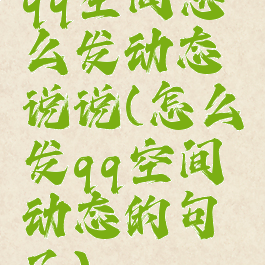 qq空间怎
么发动态
说说(怎么
发qq空间
动态的句
子)